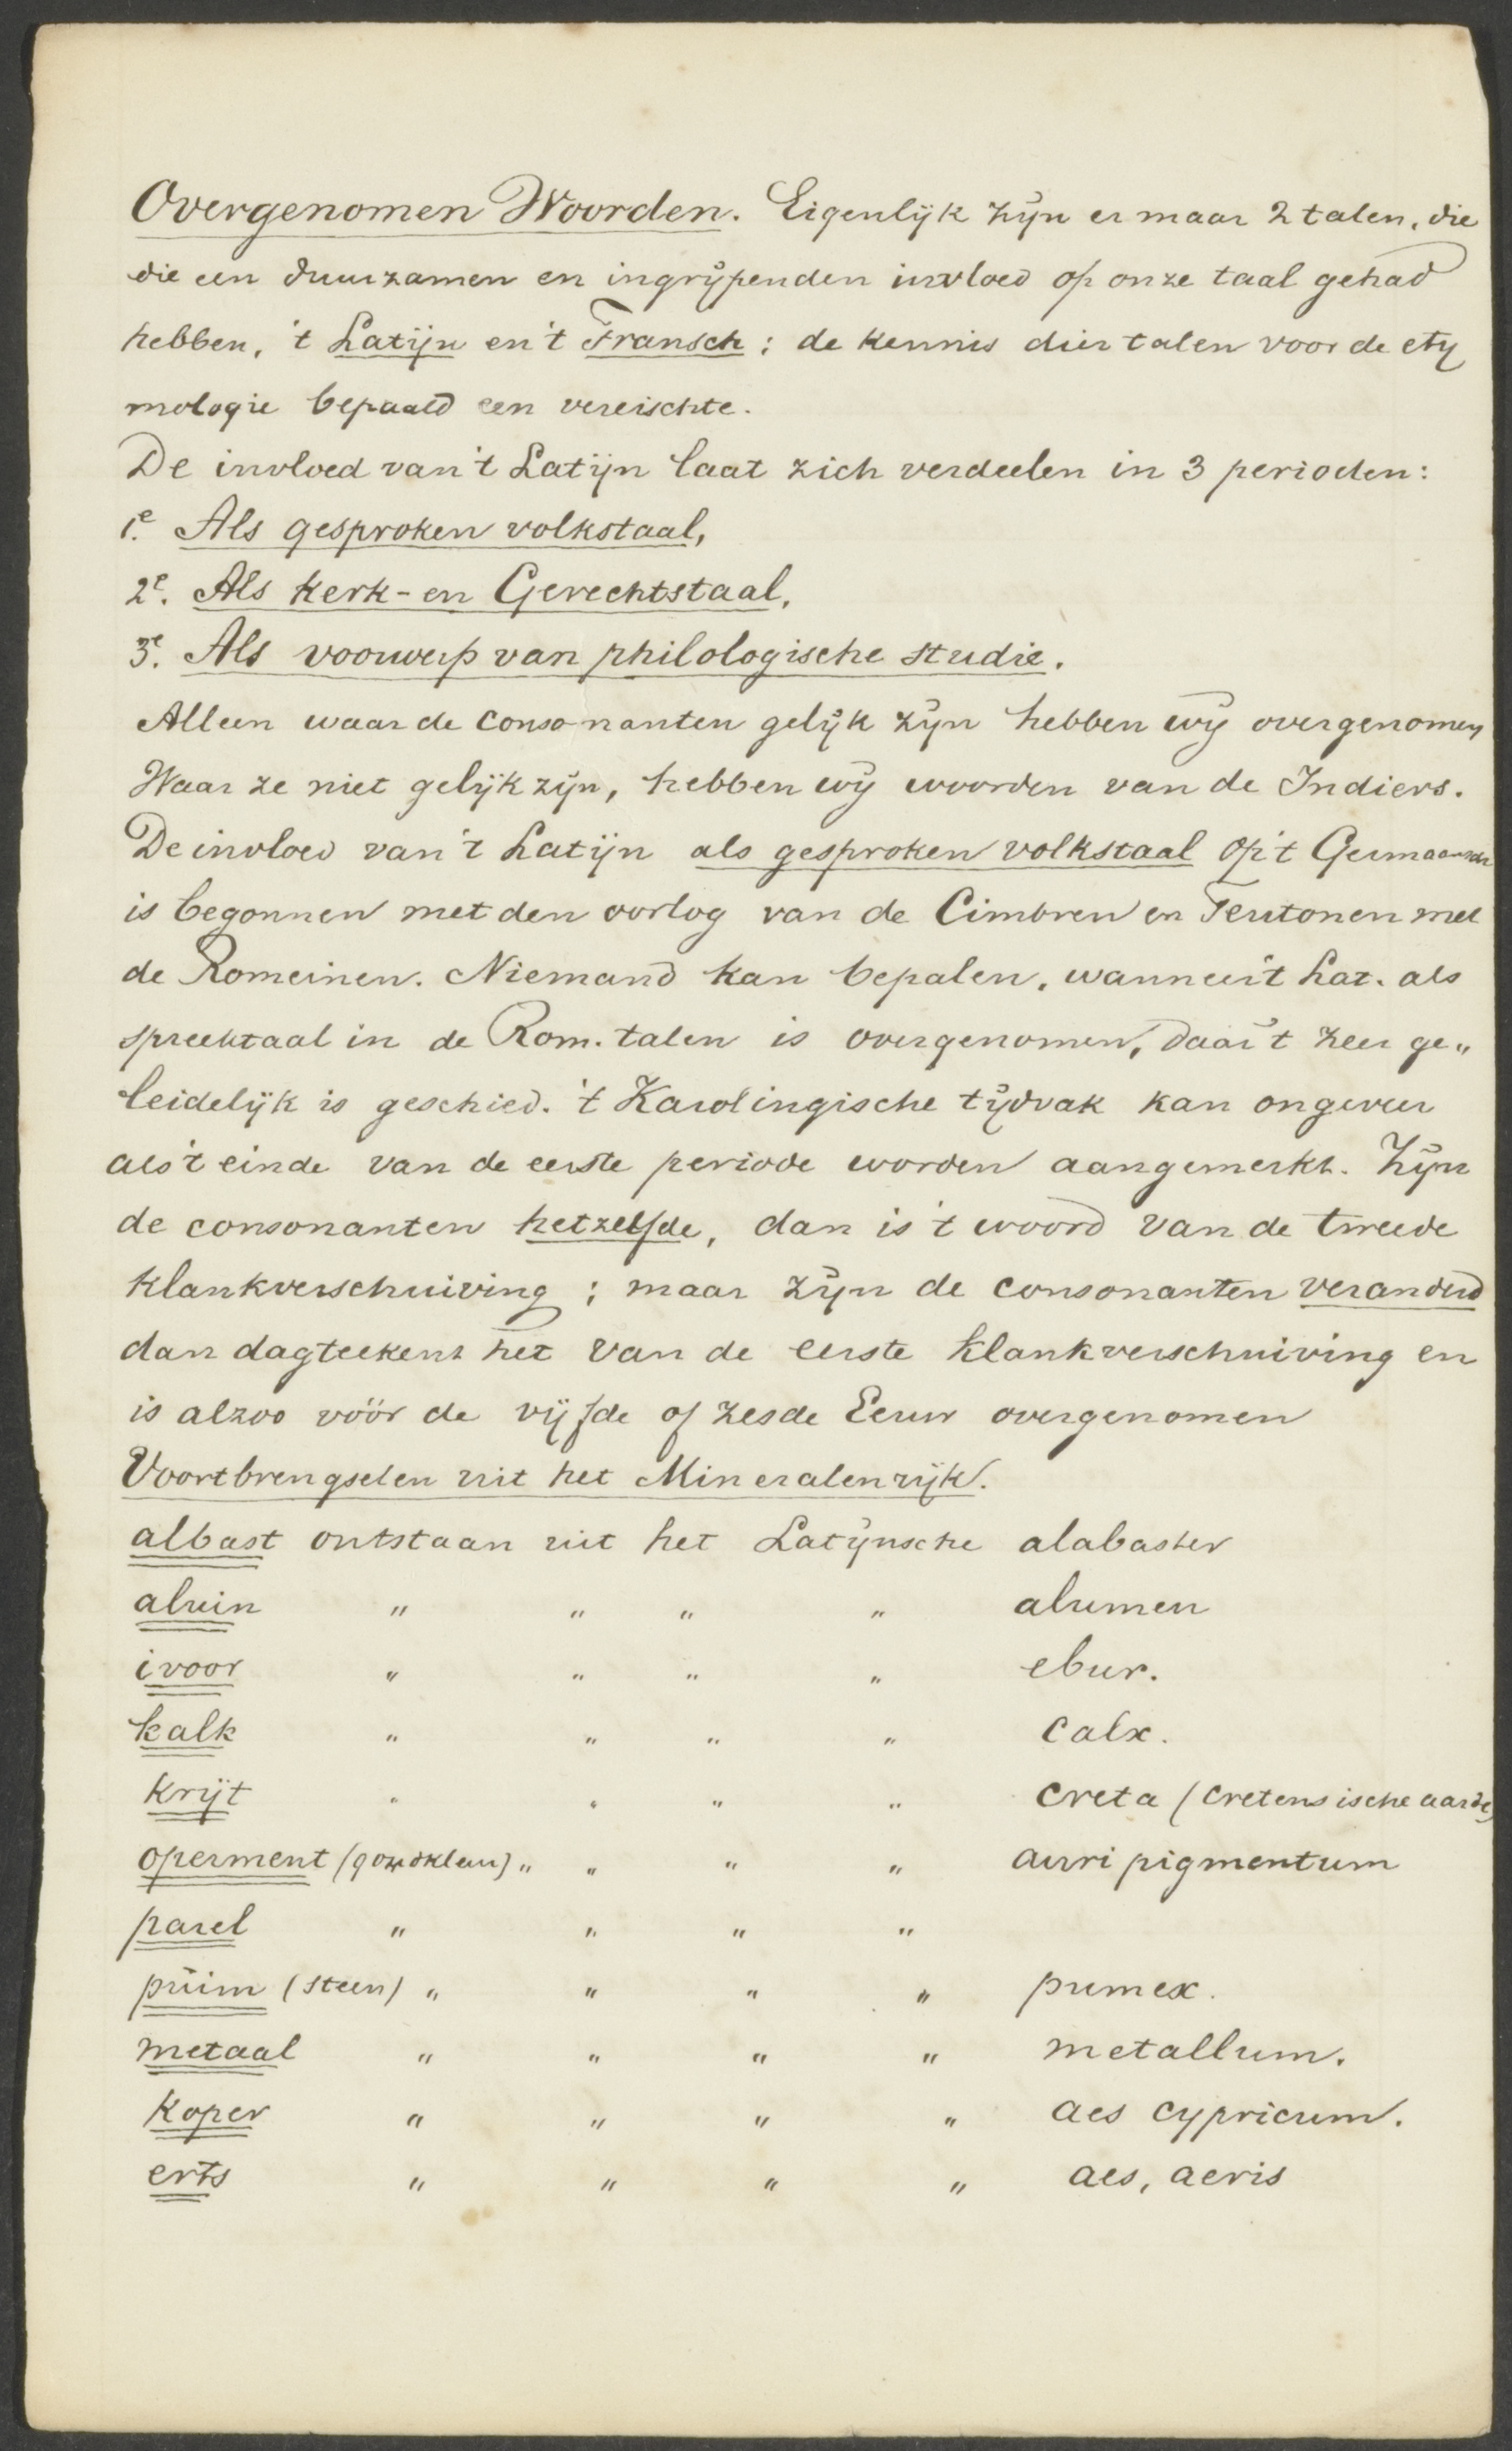 Overgenomen Woorden. Eigenlijk zijn er maar 2 talen, die
die een duurzamen en ingrijpenden invloed op onze taal gehad
hebben, 't Latijn en 't Fransch; de kennis dier talen voor de ety
mologie bepaald een vereischte.
De invloed van 't Latijn laat zich verdeelen in 3 perioden:
1e. Als gesproken volkstaal,
2e. Als kerk- en Gerechtstaal,
3e. Als voorwerp van philologische studie.
Alleen waar de consonanten gelijk zijn hebben wij overgenomen
Waar ze niet gelijk zijn, hebben wij woorden van de Indiers.
De invloed van 't Latijn als gesproken volkstaal op 't Germaansch
is begonnen met den oorlog van de Cimbren en Teutonen met
de Romeinen. Niemand kan bepalen, wanneer 't Lat. als
spreektaal in de Rom. talen is overgenomen, daar 't zeer ge„
leidelijk is geschied. 't Karolingische tijdvak kan ongeveer
als 't einde van de eerste periode worden aangemerkt. Zijn
de consonanten hetzelfde, dan is 't woord van de tweede
klankverschuiving; maar zijn de consonanten veranderd
dan dagteekent het van de eerste klankverschuiving en
is alzoo vóór de vijfde of zesde Eeuw overgenomen
Voortbrengselen uit het Mineralenrijk.
albast ontstaan uit het Latijnsche alabaster
aluin " " " " alumen
ivoor " " " " ebur.
kalk " " " " calx.
krijt " " " " creta (cretensische aarde)
operment (goudkleur) " " " " auri pigmentum
parel " " " "
puim (steen) " " " " pumex.
metaal " " " " metallum.
koper " " " " aes cypricum.
erts " " " " aes, aeris